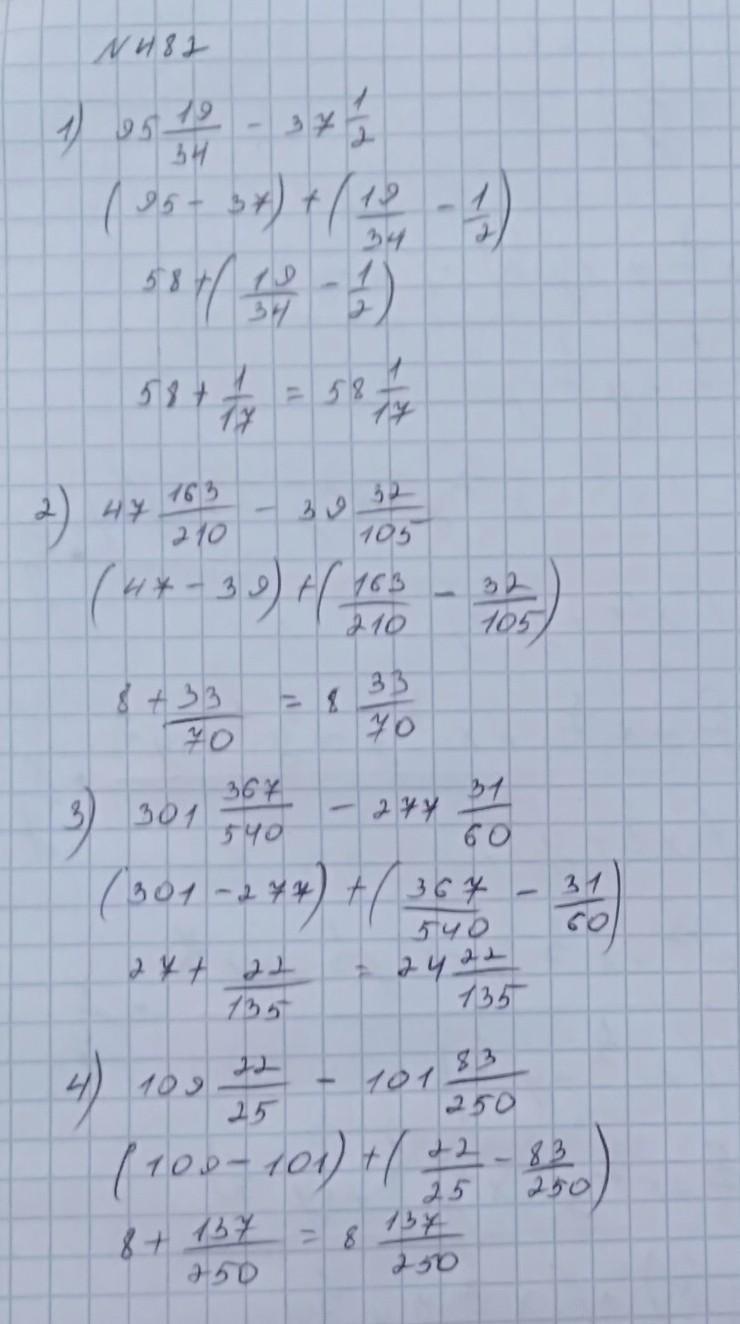 N 482
1) 95 19/34 - 37 1/2
(95 - 37) + (19/34 - 1/2)
58 + (19/34 - 1/2)
58 + 1/17 = 58 1/17
2) 47 163/210 - 39 32/105
(47 - 39) + (163/210 - 32/105)
8 + 33/70 = 8 33/70
3) 301 367/540 - 277 31/60
(301 - 277) + (367/540 - 31/60)
24 + 22/135 = 24 22/135
4) 109 22/25 - 101 83/250
(109 - 101) + (22/25 - 83/250)
8 + 137/250 = 8 137/250